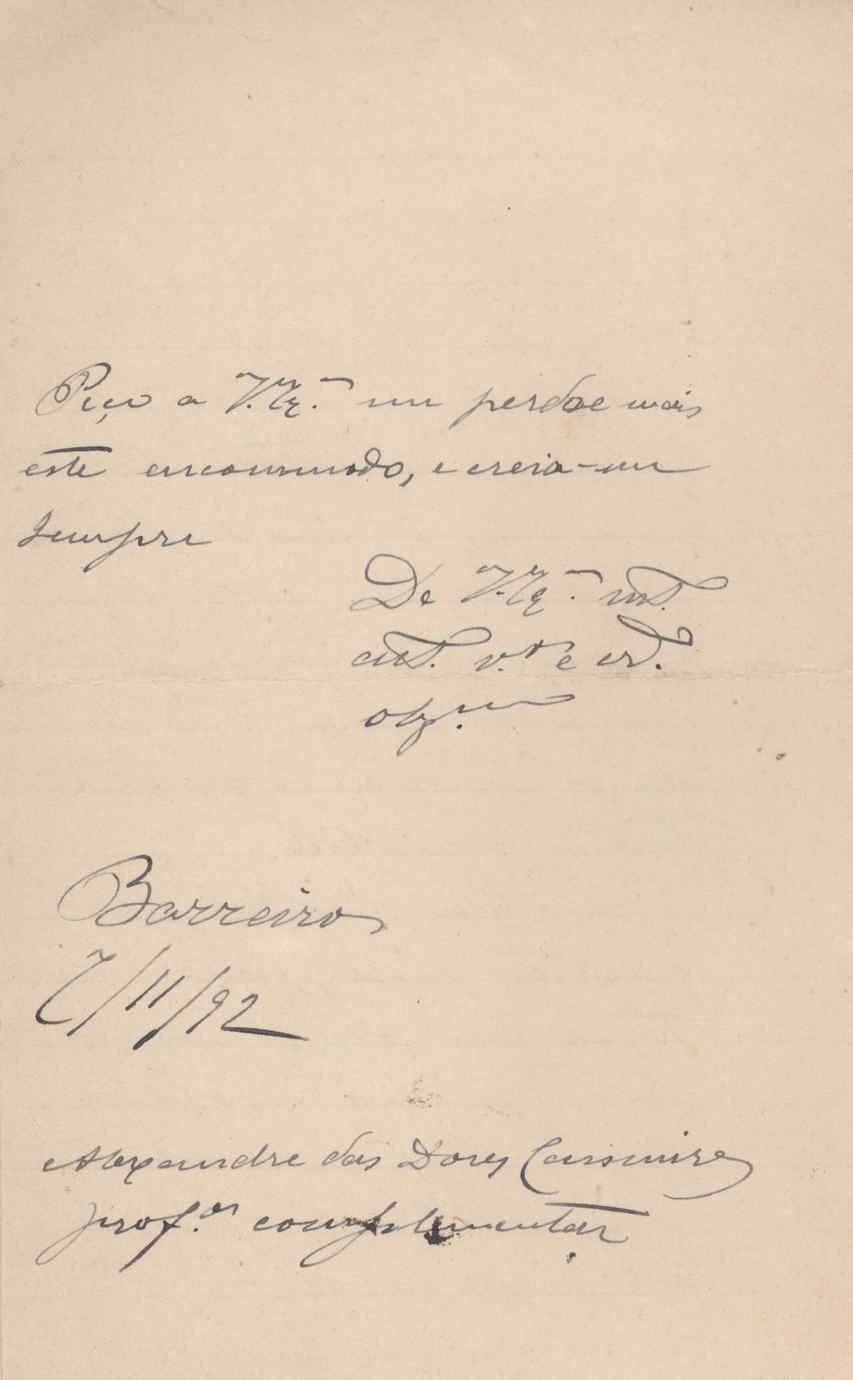 Peço a V. Ex.ª me perdoe mais
este encommodo, e creia-me
sempre
De V. Ex.ª mt.
att. v.ºr e cr.
obg.
Barreiro
7/11/92
Alexandre das Dores Casimiro
prof.or complementar